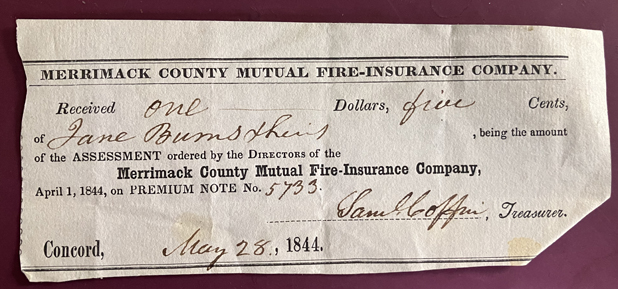 MERRIMACK COUNTY MUTUAL FIRE-INSURANCE COMPANY.
Received one Dollars, five Cents,
of Jane Burns & heirs, being the amount
of the ASSESSMENT ordered by the DIRECTORS of the
Merrimack County Mutual Fire-Insurance Company,
April 1, 1844, on PREMIUM NOTE No. 5733.
Saml. Coffin, Treasurer.
Concord, May 28, 1844.